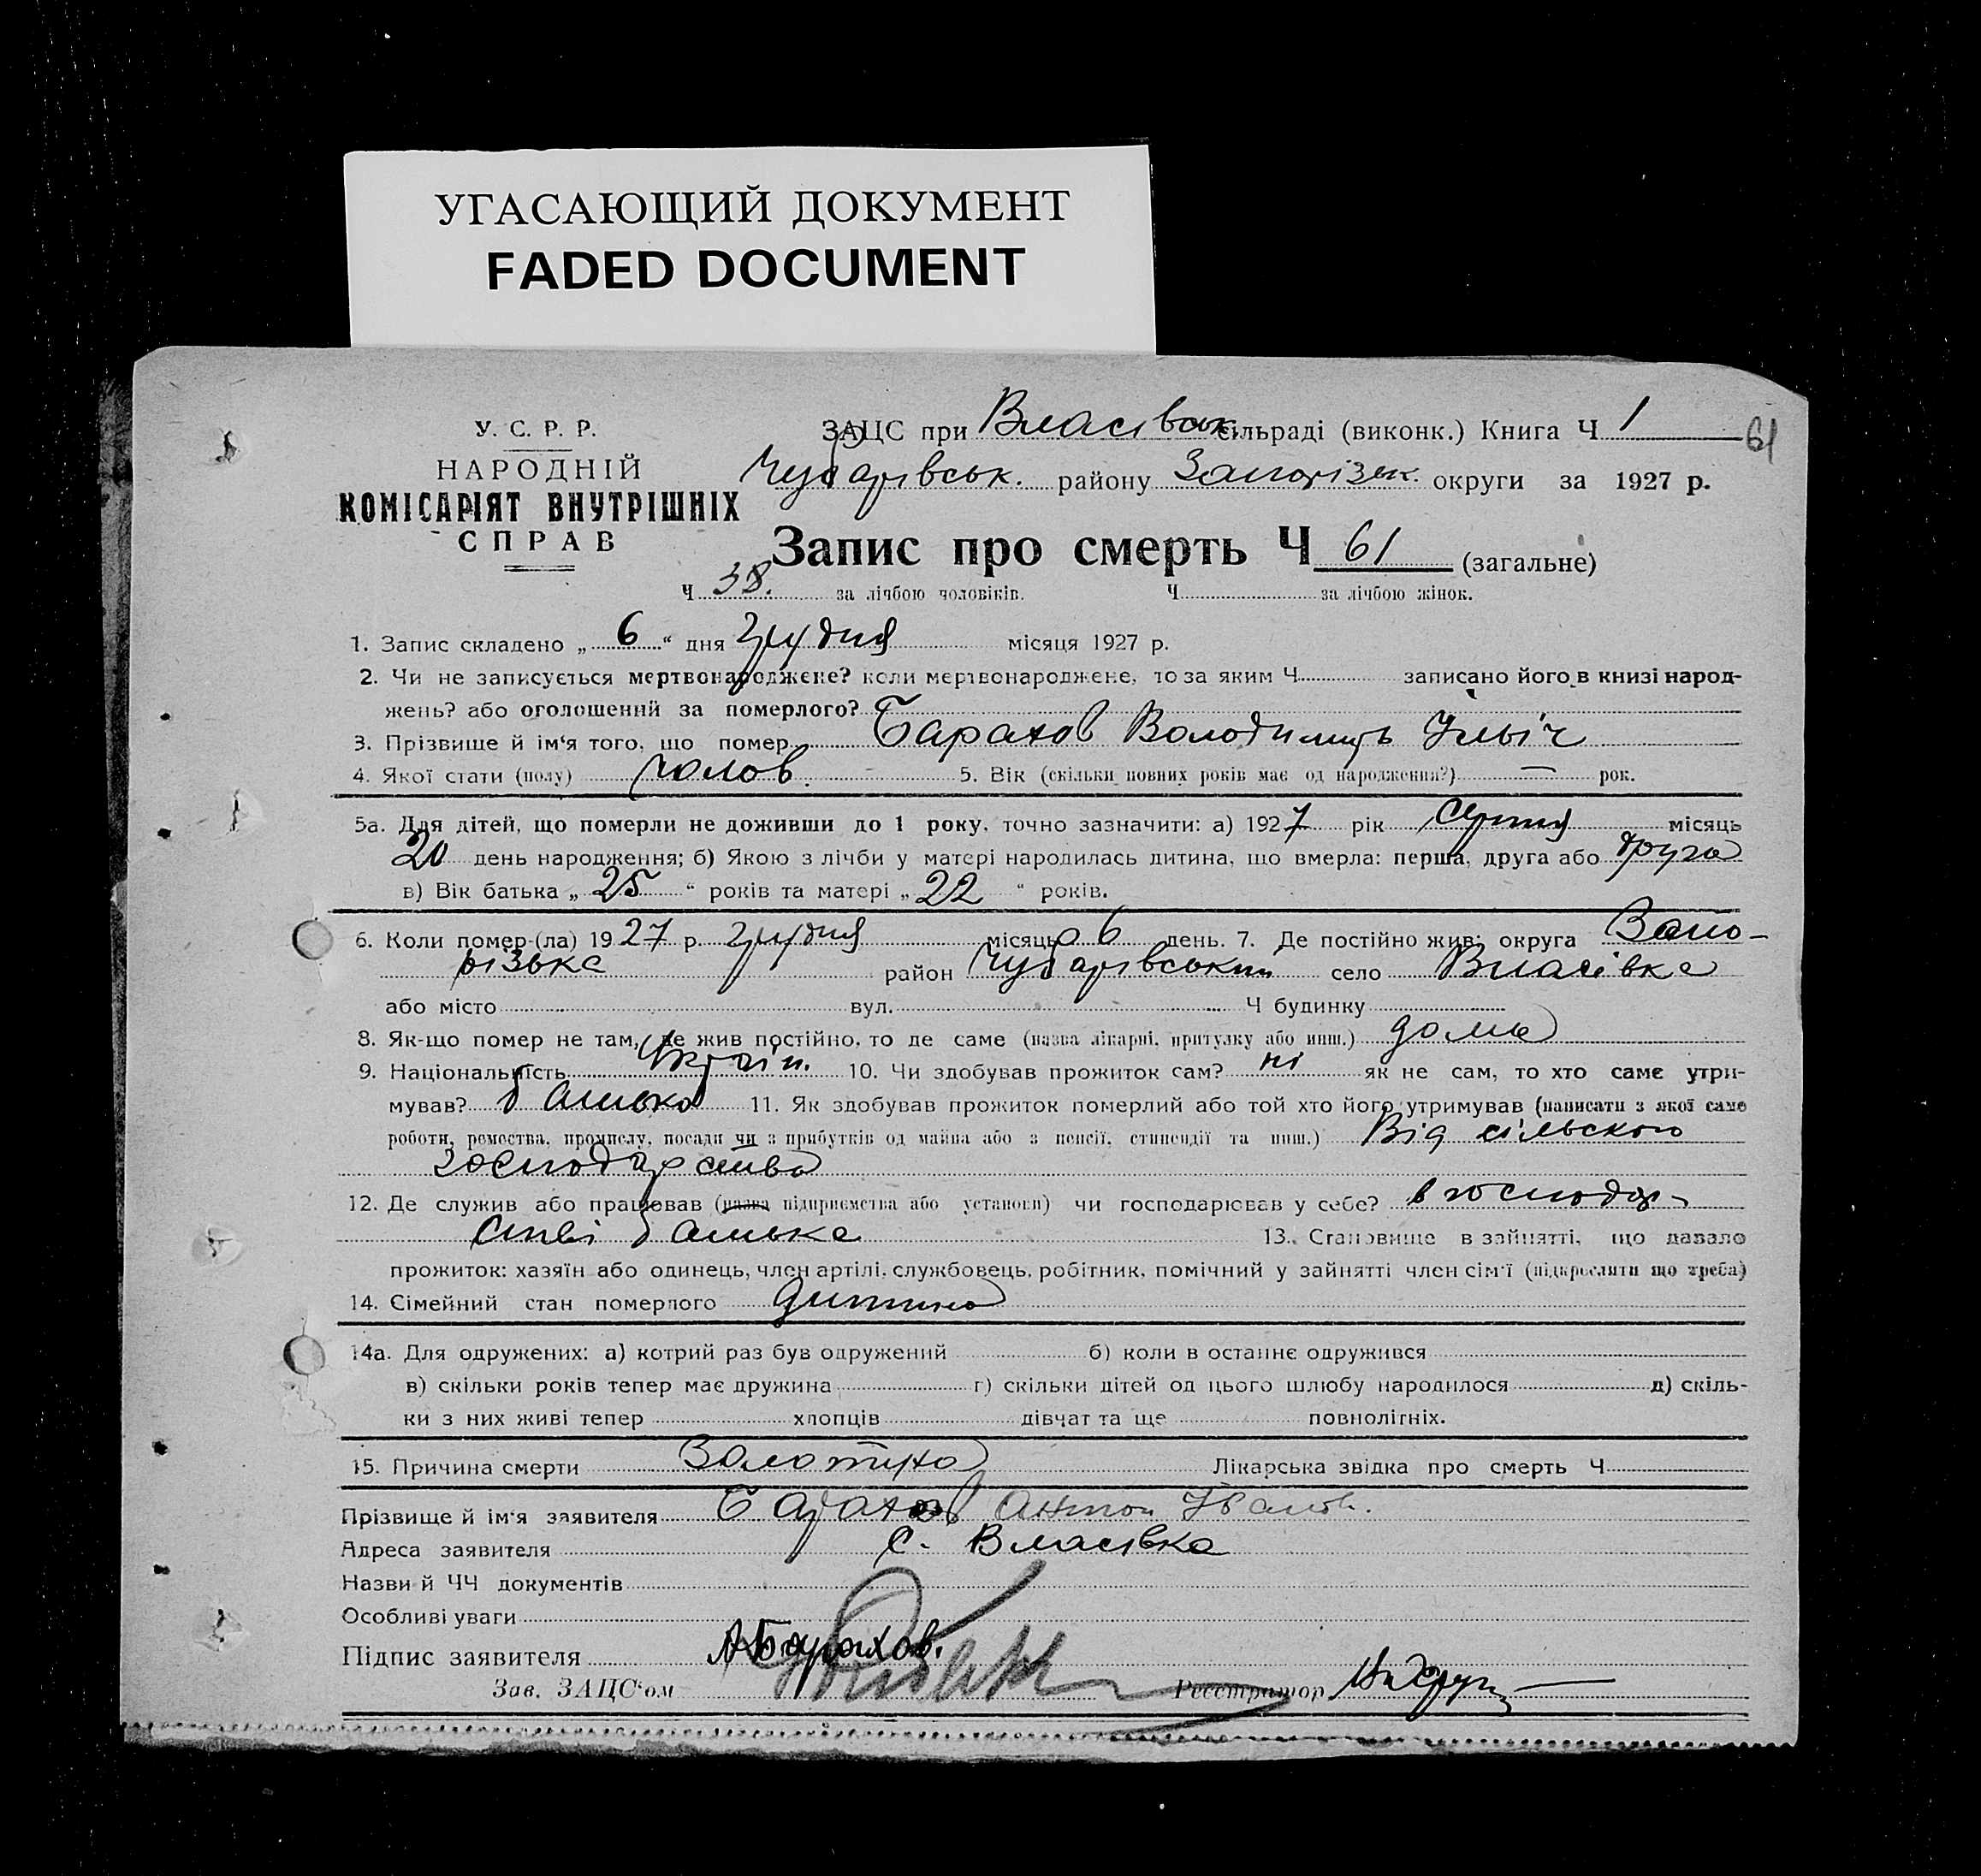 УГАСАЮЩИЙ ДОКУМЕНТ
FADED DOCUMENT
У. С. Р. Р.
НАРОДНІЙ
КОМІСАРІЯТ ВНУТРІШНІХ
СПРАВ
ЗАЦС при Власівськ. сільраді (виконк.) Книга Ч 1
61
Чубарівськ. району Запорізьк. округи за 1927 р.
Запис про смерть Ч 61 (загальне)
Ч 38. за лічбою чоловіків. Ч за лічбою жінок.
1. Запис складено „ 6 “ дня Грудня місяця 1927 р.
2. Чи не записується мертвонароджене? коли мертвонароджене, то за яким Ч записано його в книзі народ-
жень? або оголошений за померлого?
3. Прізвище й ім'я того, що помер Барахов Володимир Ільіч
4. Якої стати (полу) чолов. 5. Вік (скільки повних років має од народження?) — рок.
5а. Для дітей, що померли не доживши до 1 року, точно зазначити: а) 1927 рік Серпня місяць
20 день народження; б) Якою з лічби у матері народилась дитина, що вмерла: перша, друга або друга
в) Вік батька „ 25 “ років та матері „ 22 “ років.
6. Коли помер-(ла) 1927 р. грудня місяць 6 день. 7. Де постійно жив: округа Запо-
різька район Чубарівський село Власівка
або місто вул. Ч будинку
8. Як-що помер не там, де жив постійно, то де саме (назва лікарні, притулку або инш.) дома
9. Національність Україн. 10. Чи здобував прожиток сам? ні як не сам, то хто саме утри-
мував? батько 11. Як здобував прожиток померлий або той хто його утримував (написати з якої саме
роботи, ремества, промислу, посади чи з прибутків од майна або з пенсії, стипендії та инш.) Від сільського
господарства
12. Де служив або працював (назва підприємства або установи) чи господарював у себе? в господар-
стві батька 13. Становище в зайнятті, що давало
прожиток: хазяїн або одинець, член артілі, службовець, робітник, помічний у зайнятті член сім'ї (підкреслити що треба)
14. Сімейний стан померлого дитина
14а. Для одружених: а) котрий раз був одружений б) коли в останнє одружився
в) скільки років тепер має дружина г) скільки дітей од цього шлюбу народилося д) скіль-
ки з них живі тепер хлопців дівчат та ще повнолітніх.
15. Причина смерти Золотуха Лікарська звідка про смерть Ч
Прізвище й ім'я заявителя Барахов Антон Іванов.
Адреса заявителя с. Власівка
Назви й ЧЧ документів
Особливі уваги
Підпис заявителя А Барахов.
Зав. ЗАЦС'ом Реєстратор